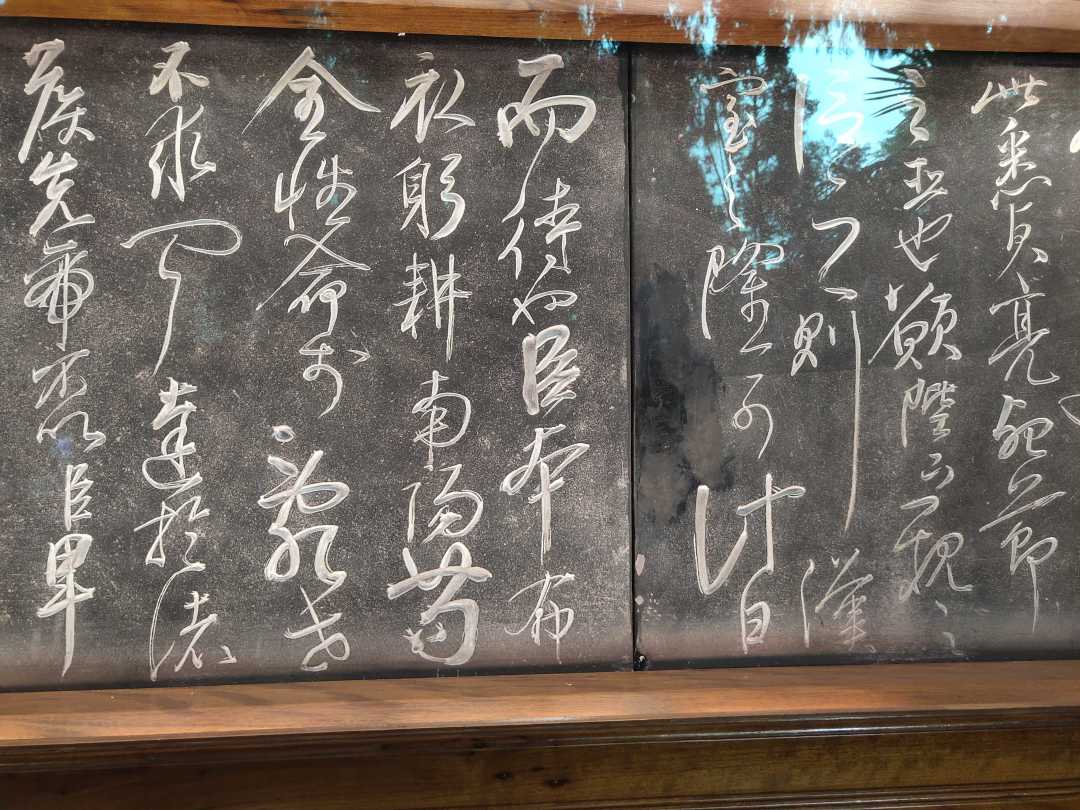 此悉貞亮死節
之臣也願陛下親之
信之則漢
室之隆可計日
而待也臣本布
衣躬耕南陽苟
全性命於亂世
不求聞達於諸
侯先帝不以臣卑